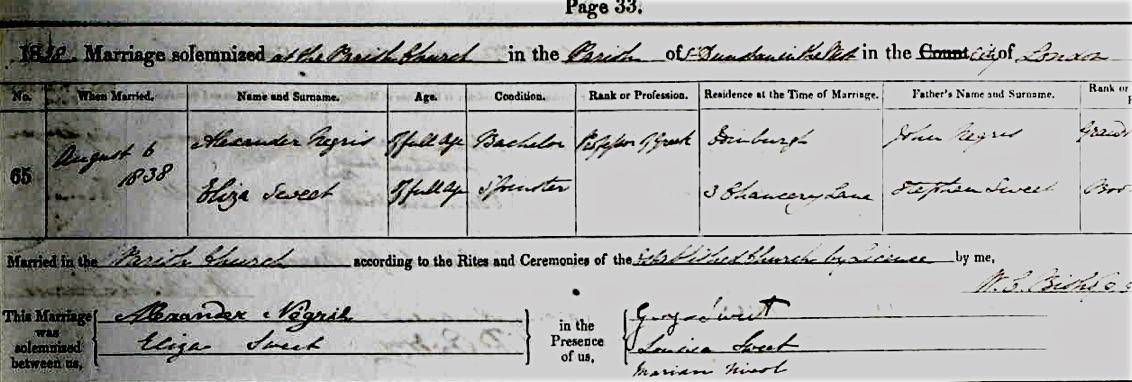 Page 33.
1838. Marriage solemnized at the Parish Church in the Parish of St Dunstan in the West in the County City of London
No. When Married. Name and Surname. Age. Condition. Rank or Profession. Residence at the Time of Marriage. Father's Name and Surname. Rank or
65 August 6 1838
Alexander Negris Of full age Bachelor Professor of Greek Edinburgh John Negris
Eliza Sweet Of full age Spinster 3 Chancery Lane Stephen Sweet
Married in the Parish Church according to the Rites and Ceremonies of the Established Church by Licence by me,
This Marriage was solemnized between us, Alexander Negris
Eliza Sweet
in the Presence of us, George Sweet
Louisa Sweet
Marian